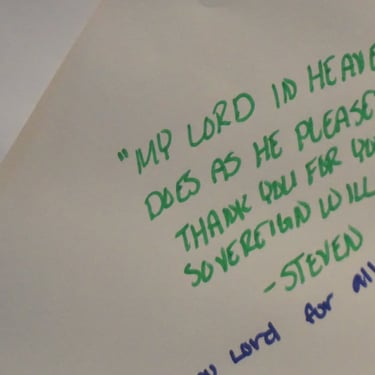 "MY LORD IN HEAVE
DOES AS HE PLEASE
THANK YOU FOR YOU
SOVEREIGN WILL
-STEVEN
ou Lord for all